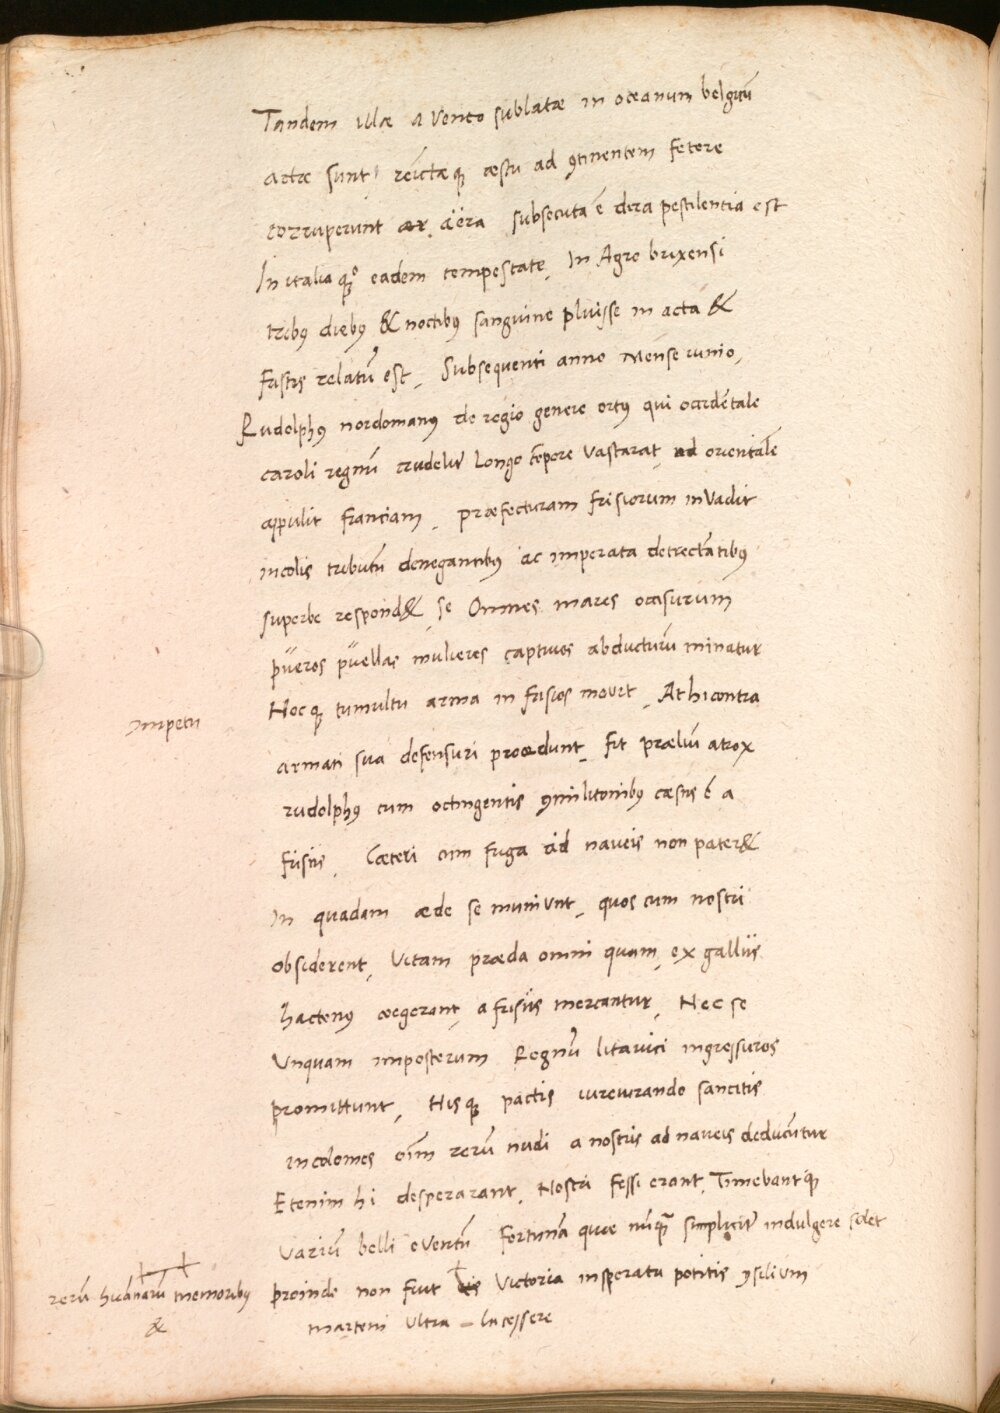 Tandem illæ a vento sublatæ in oceanum belgicū
actæ sunt reiectæq; æstu ad ꝯtinentem fetore
corruperunt aër. aëra subsecuta ē dira pestilentia est
In italia quoq; eadem tempestate, In Agro brixensi
tribus diebus & noctibus sanguine pluisse in acta &
fastis relatū est, Subsequenti anno Mense iunio,
Rudolphus nordomanus de regio genere ortus qui occidētale
caroli regnū crudelit longo tēpore vastarat, ad orientale
appulit franciam, præfecturam frisiorum invadit
incolis tributū denegantibus ac imperata detrectātibus
superbe respond&, se Omnes mares occisurum
püeros püellas mulieres captivos abducturū minatur
Hocq; tumultu arma in frisios movet, At hi contra
impetu
armati sua defensuri procedunt, fit præliū atrox
rudolphus cum octingentis ꝯmilitonibus cæsus ē a
frisiis, Cæteri cum fuga ad naveis non pater&
In quadam æde se muniunt, quos cum nostri
obsiderent, Vitam præda omni quam, ex galliis
hactenus coegerant, a frisiis mercantur, Nec se
Unquam imposterum Regnū litavici ingressuros
promittunt, Hisq; pactis iureiurando sancitis
incolomes oīm rerū nudi a nostris ad naveis deducūtur
Etenim hi desperarant, Nostri fessi erant, Timebantq;
variū belli eventū fortunā quæ nūquā simplicit indulgere solet
rerū humanarū memoribus
&
proinde non fuit Victoria insperatu potitis ꝯsilium
martem ultra lacessere